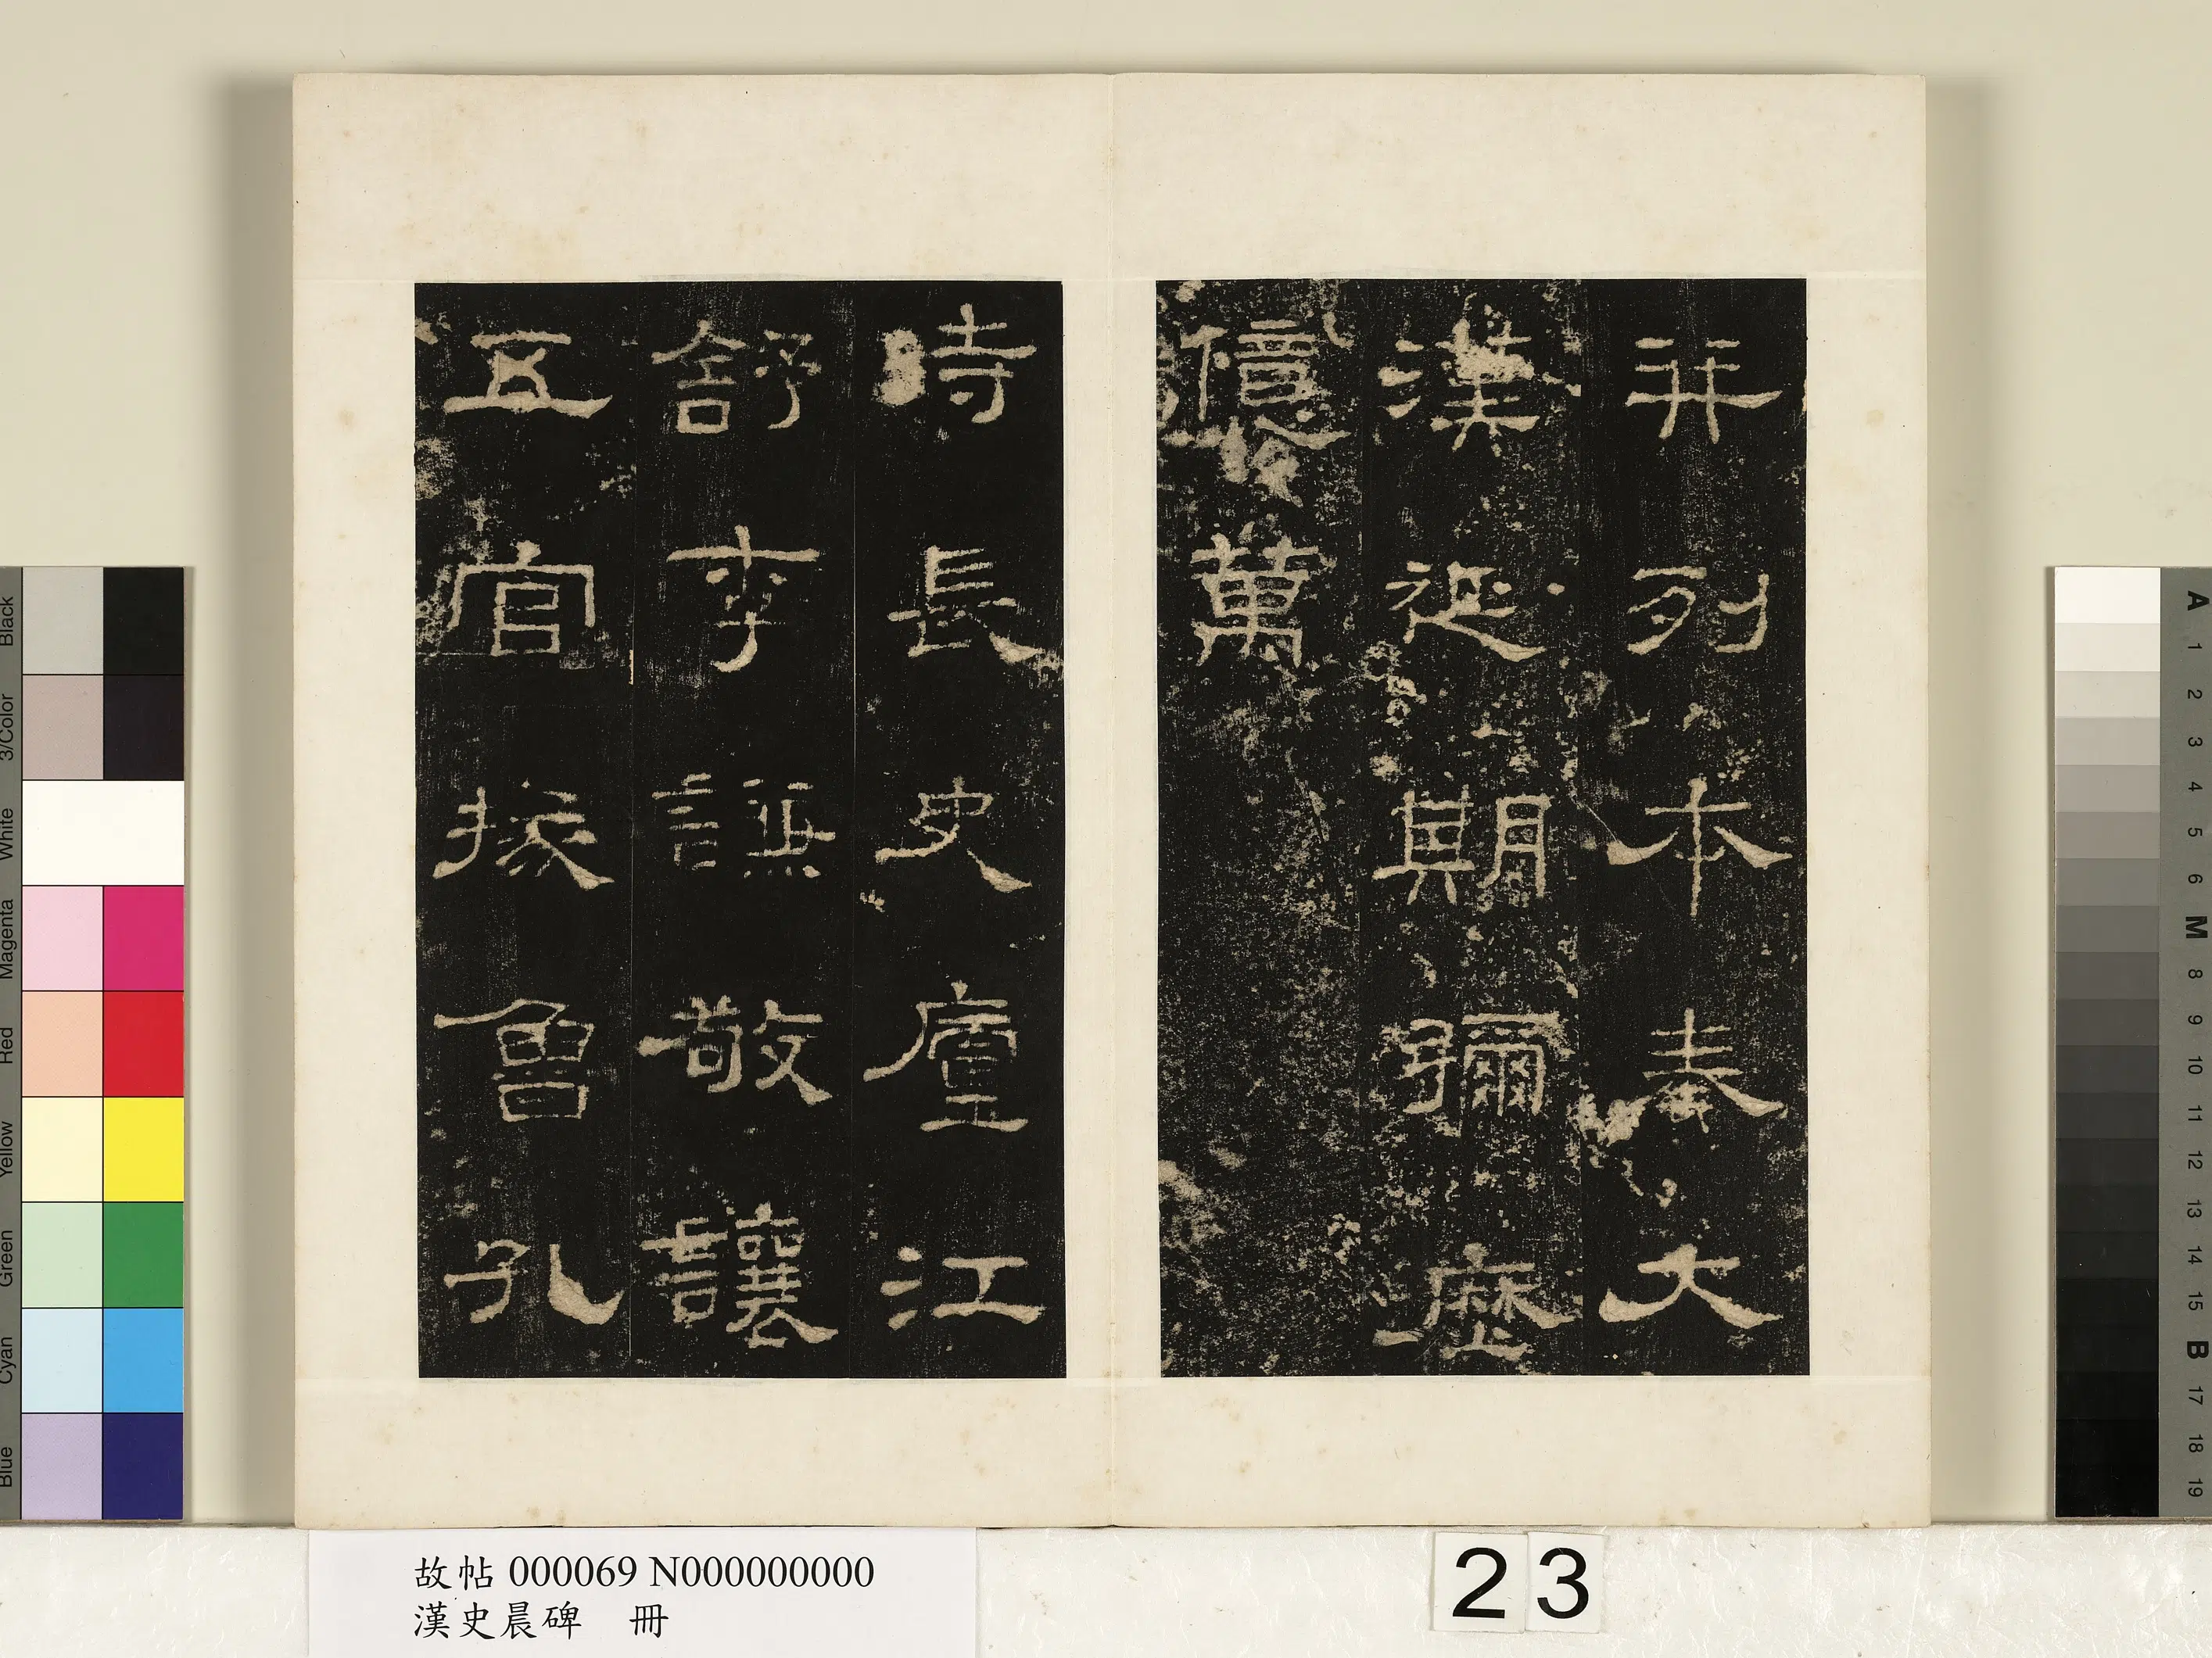 并列本奏大
漢延期彌歷
億萬
時長史廬江
舒李謙敬讓
五官掾魯孔
故帖 000069 N000000000
漢史晨碑 冊
23
Black
3/Color
White
Magenta
Red
Yellow
Green
Cyan
Blue
A
1
2
3
4
5
6
M
8
9
10
11
12
13
14
15
B
17
18
19